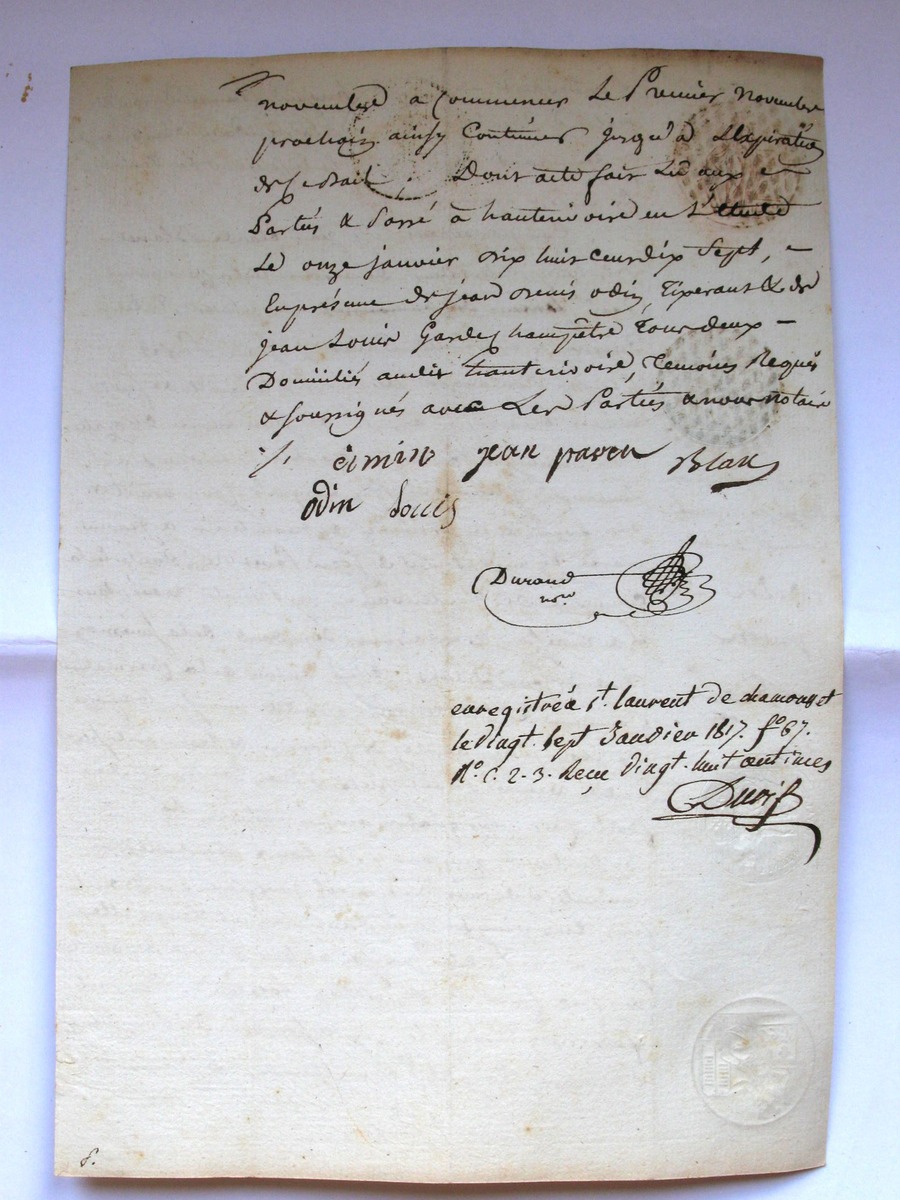 novembre a Commencer Le Premier novembre
prochain ainsy Continuer jusqu'à L'Expiration
de Ce Bail, Dont acte fait Lu aux
Partiés & Passé à hauterivoire en L'étude
Le onze janvier dix huit cent dix Sept,
En présence de jean denis odin, Tixerant & de
jean Louis Garde Champêtre Tous deux
Domiciliés audit hauterivoire, Temoins Requis
& Soussignés avec Les Partiés & nous notaire
jean Blanc
odin Louis
Durand
nore
enregistré à St. laurent de chamousset
le Vingt. Sept Janvier 1817. fo 67.
Ro. C. 2-3. Reçu Vingt. huit centimes
8.